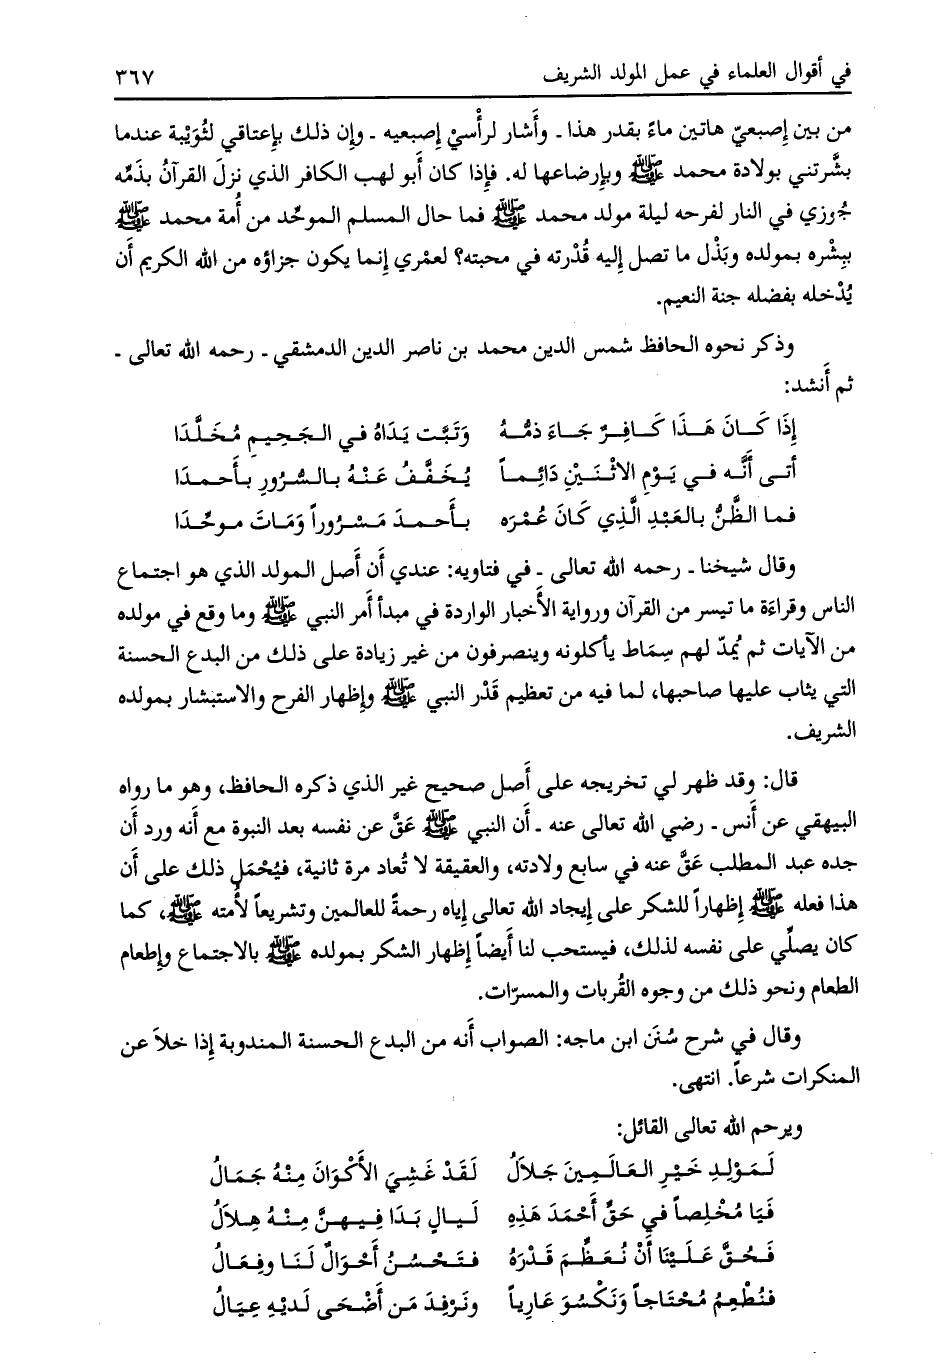 في أقوال العلماء في عمل المولد الشريف ٣٦٧
من بين إصبعيّ هاتين ماءً بقدر هذا ـ وأَشار لرأْسيْ إصبعيه ـ وإن ذلك بإعتاقي لثُوَيْبة عندما
بشَّرتني بولادة محمد ﷺ وبإرضاعها له. فإذا كان أَبو لهب الكافر الذي نزلَ القرآنُ بذَمّه
جُوزي في النار لفرحه ليلة مولد محمد ﷺ فما حال المسلم الموحّد من أُمة محمد ﷺ
ببِشْره بمولده وبَذْل ما تصل إليه قُدْرته في محبته؟ لعمْري إنما يكون جزاؤه من الله الكريم أَن
يُدْخله بفضله جنة النعيم.
وذكر نحوه الحافظ شمس الدين محمد بن ناصر الدين الدمشقي ـ رحمه الله تعالى ـ
ثم أَنشد:
إِذَا كَـانَ هَـذَا كَـافِـرٌ جَـاءَ ذمُّـهُ وَتَبَّت يَدَاهُ في الـجَحِيمِ مُخَلَّدَا
أتـى أَنَّـه فـي يَـوْمِ الاثْنَـيْنِ دَائِـمـاً يُخَفَّفُ عَنْهُ بـالسُّرُورِ بـأَحـمـدَا
فمـا الظَّنُّ بالعَبْدِ الَّذِي كَانَ عُمْرَه بـأَحـمـدَ مَسْرُوراً وَمَـاتَ مـوحِّـدَا
وقال شيخنا ـ رحمه الله تعالى ـ في فتاويه: عندي أَن أَصل المولد الذي هو اجتماع
الناس وقراءَة ما تيسر من القرآن ورواية الأَخبار الواردة في مبدأ أَمر النبي ﷺ وما وقع في مولده
من الآيات ثم يُمدّ لهم سِمَاط يأكلونه وينصرفون من غير زيادة على ذلك من البدع الحسنة
التي يثاب عليها صاحبها، لما فيه من تعظيم قَدْر النبي ﷺ وإظهار الفرح والاستبشار بمولده
الشريف.
قال: وقد ظهر لي تخريجه على أَصل صحيح غير الذي ذكره الحافظ، وهو ما رواه
البيهقي عن أَنس ـ رضي الله تعالى عنه ـ أَن النبي ﷺ عَقَّ عن نفسه بعد النبوة مع أَنه ورد أَن
جده عبد المطلب عَقَّ عنه في سابع ولادته، والعقيقة لا تُعاد مرة ثانية، فيُحْمَل ذلك على أَن
هذا فعله ﷺ إظهاراً للشكر على إيجاد الله تعالى إياه رحمةً للعالمين وتشريعاً لأُمته ﷺ، كما
كان يصلّي على نفسه لذلك، فيستحب لنا أَيضاً إظهار الشكر بمولده ﷺ بالاجتماع وإطعام
الطعام ونحو ذلك من وجوه القُربات والمسرّات.
وقال في شرح سُنَن ابن ماجه: الصواب أَنه من البدع الحسنة المندوبة إذا خلاَ عن
المنكرات شرعاً. انتهى.
ويرحم الله تعالى القائل:
لَمَوْلِدِ خَيْرِ العَالَمِينَ جَلاَلُ لَقَدْ غَشِيَ الأَكْوَانَ مِنْهُ جَمَالُ
فَيَا مُخْلِصاً في حَقِّ أَحْمَدَ هَذِهِ لَـيَـالٍ بَدَا فِيـهِـنَّ مِنْـهُ هِلاَلُ
فَحُقَّ عَلَيْنَا أَنْ نُعَظِّمَ قَدْرَهُ فتَحْسُنُ أَحْوَالٌ لَنَا وفِعَالُ
فنُطْعِمُ مُحْتَاجاً وَنَكْسُوَ عَارِياً ونَرْفِدَ مَن أَضْحَى لَديْهِ عِيَالُ